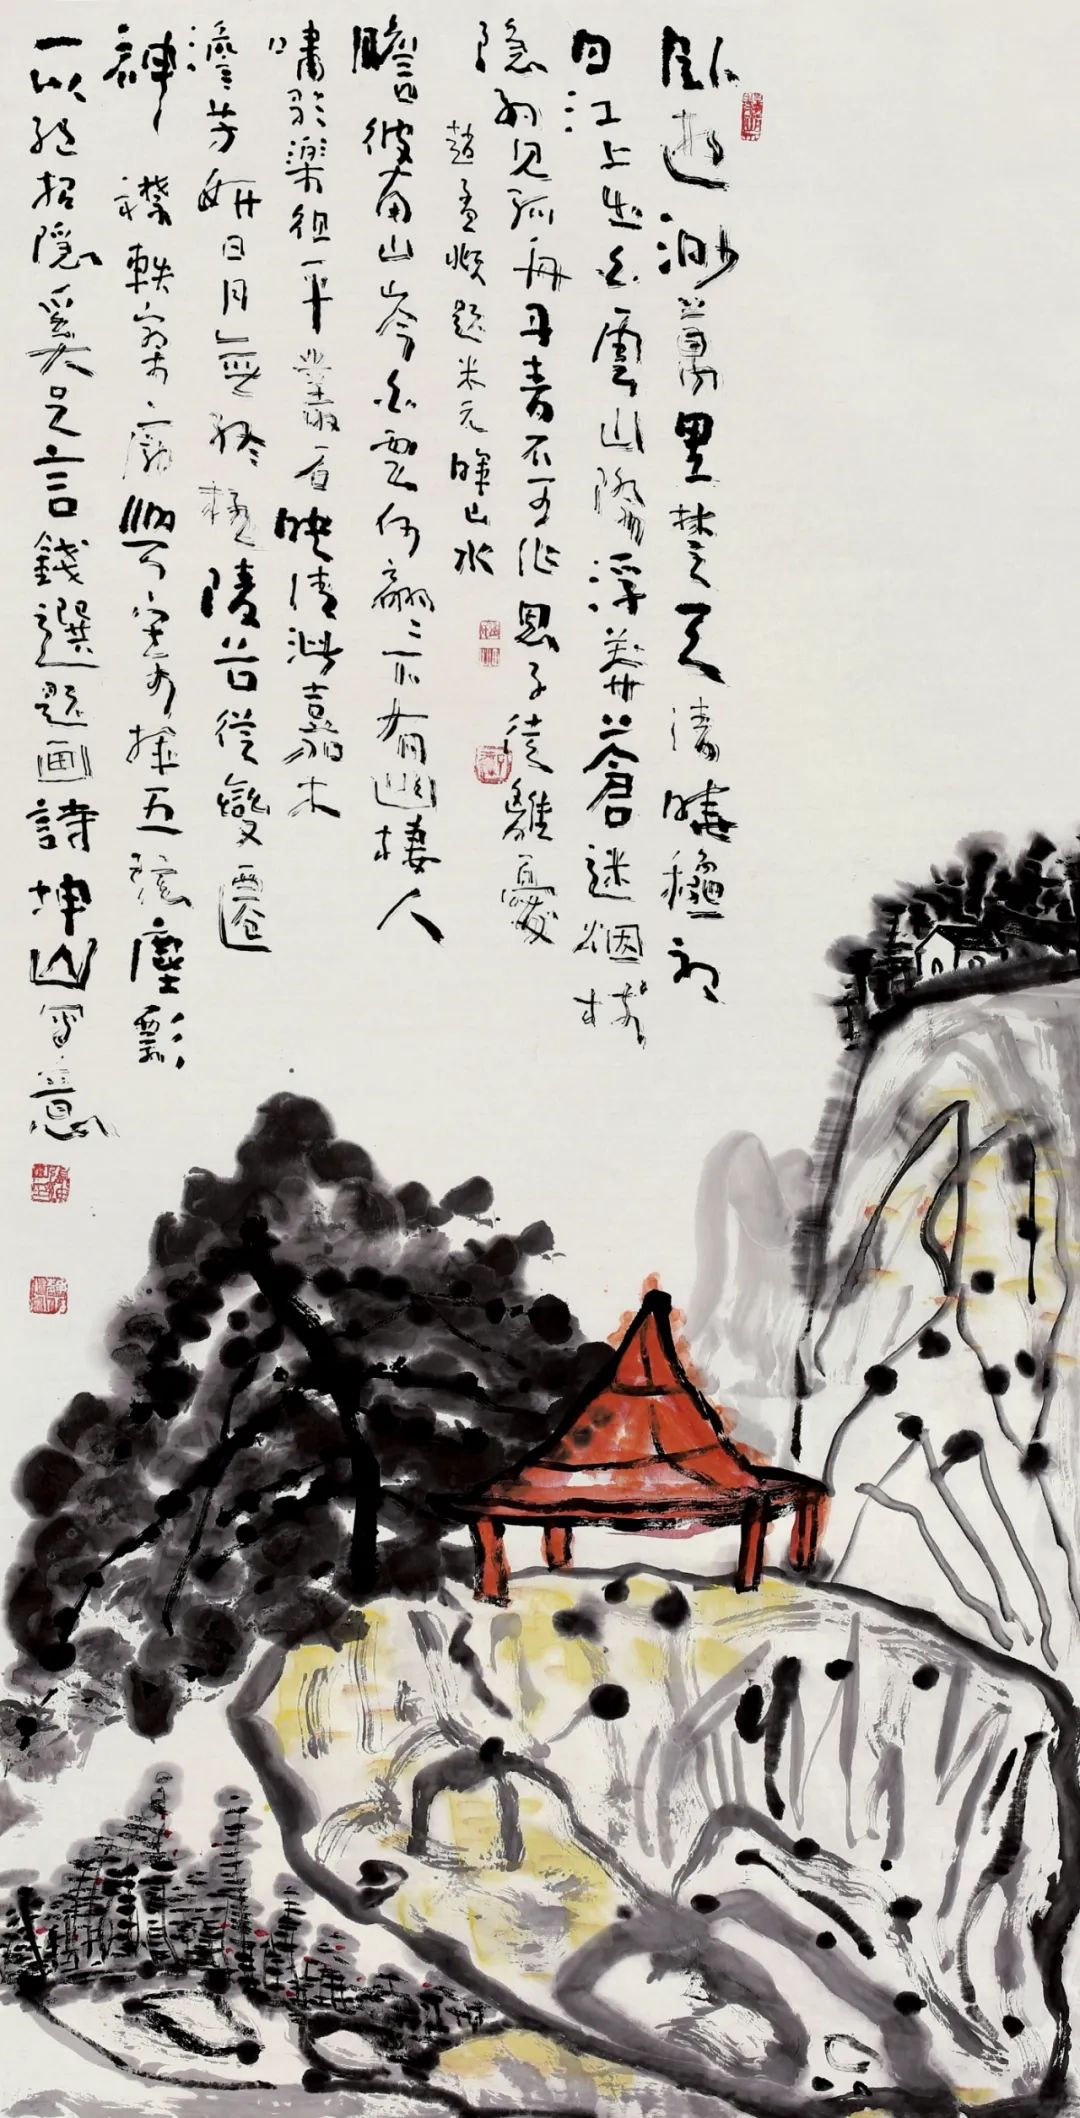 臥遊渺萬里楚天清曉穐初
日江上生白雲山際浮莽蒼迷烟樹
隱約見孤舟丹青不可作思子徒離憂
趙孟頫題米元暉山水
瞻彼南山岑白雲何翩〻下有幽棲人
嘯歌樂徂年叢石映清泚嘉木
澹芳妍日月無終極陵谷從變遷
神襟軼寥廓興寄揮五弦塵影
一以絕招隱奚足言錢選題画詩坤山寫意